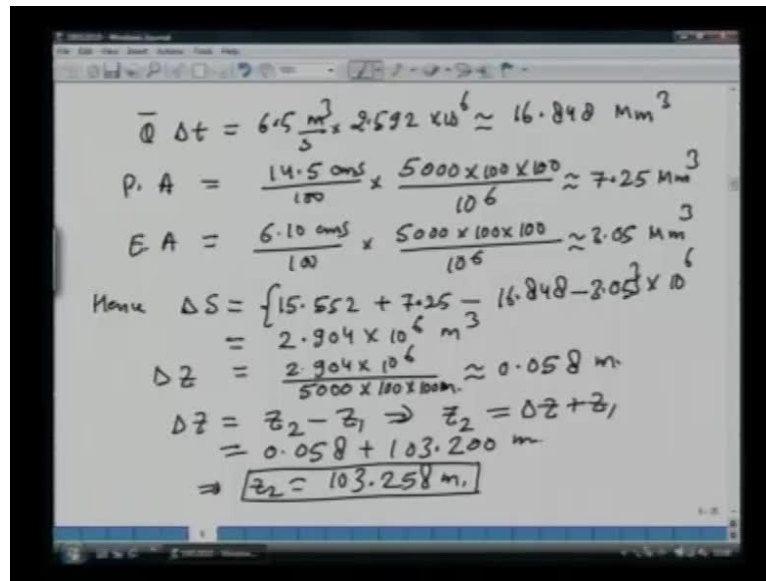 Q̄ Δt = 6.5 m³/s × 2.592 × 10⁶ ≃ 16.848 Mm³
P. A = 14.5 cms/100 × 5000×100×100/10⁶ ≈ 7.25 Mm³
E. A = 6.10 cms/100 × 5000×100×100/10⁶ ≈ 3.05 Mm³
Hence ΔS = {15.552 + 7.25 − 16.848 − 3.05} × 10⁶
= 2.904 × 10⁶ m³
ΔZ = 2.904 × 10⁶/5000×100×100m. ≈ 0.058 m.
ΔZ = Z₂ − Z₁ ⇒ Z₂ = ΔZ + Z₁
= 0.058 + 103.200 m
⇒ Z₂ = 103.258 m.